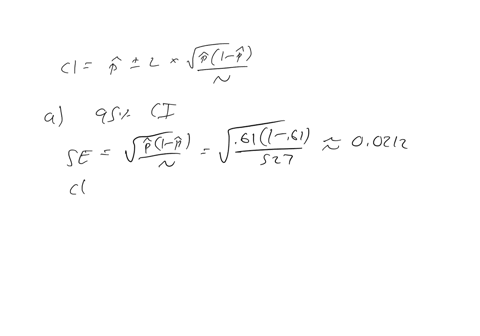 CI = p̂ ± z * √(p̂(1-p̂)/n)
a) 95% CI
SE = √(p̂(1-p̂)/n) = √(.61(1-.61)/527) ≈ 0.0212
CI